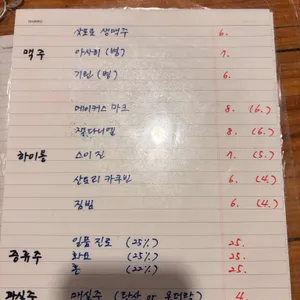 맥주
삿포로 생맥주 6.
아사히 (병) 7.
기린 (병) 6.
하이볼
메이커스 마크 8. (6.)
잭다니엘 8. (6.)
스이 진 7. (5.)
산토리 카쿠빈 6. (4.)
짐빔 6. (4.)
증류주
일품 진로 (25%) 25.
화요 (25%) 25.
(22%) 25.
과실주
매실주 (탄산 or 온더락) 4.